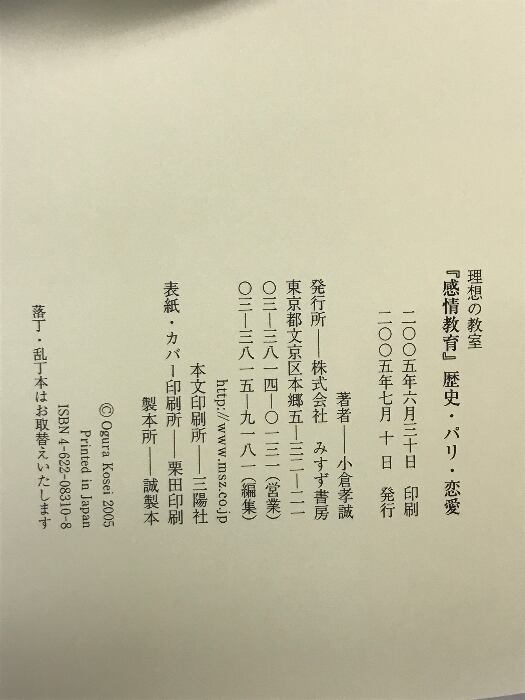 理想の教室
『感情教育』歴史・パリ・恋愛
二〇〇五年六月三十日 印刷
二〇〇五年七月十日 発行
著者――小倉孝誠
発行所――株式会社 みすず書房
東京都文京区本郷五―三二―二一
〇三―三八一四―〇一三一(営業)
〇三―三八一五―九一八一(編集)
http://www.msz.co.jp
本文印刷所――三陽社
表紙・カバー印刷所――栗田印刷
製本所――誠製本
© Ogura Kosei 2005
Printed in Japan
ISBN 4-622-08310-8
落丁・乱丁本はお取替えいたします